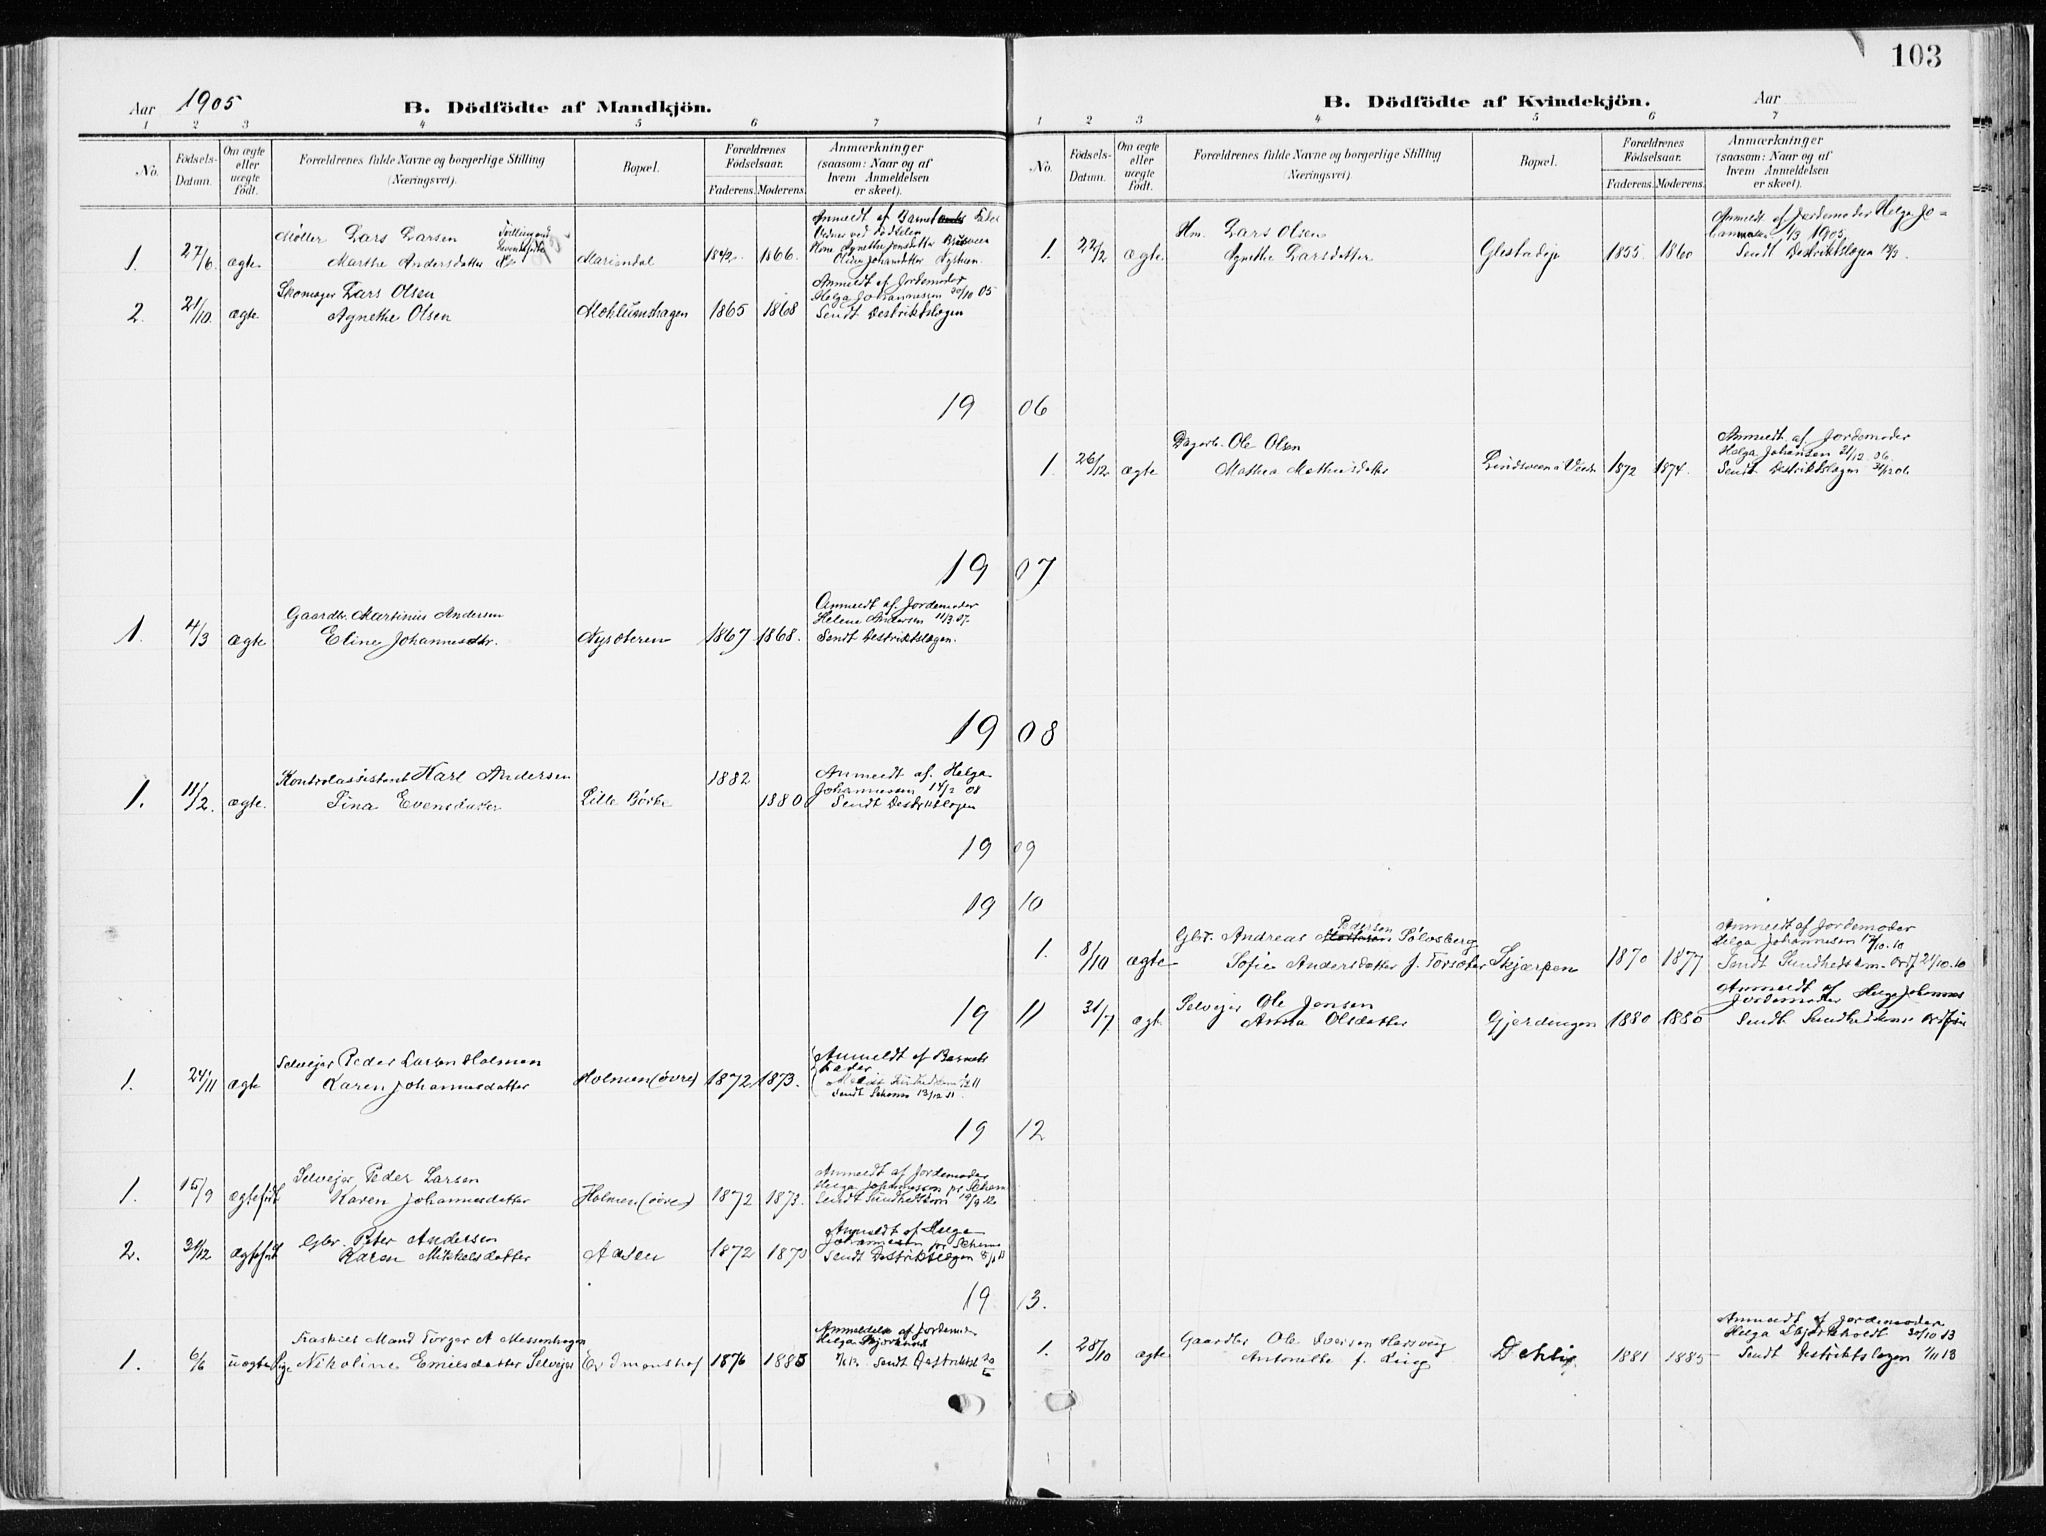 103
Aar 1905
B. Dödfödte af Mandkjön.
1 2 3 4 5 6 7
No.
Födsels-
Datum.
Om ægte
eller
uægte
födt.
Forældrenes fulde Navne og borgerlige Stilling
(Næringsvei).
Bopæl.
Forældrenes
Födselsaar.
Faderens. Moderens.
Anmærkninger
(saasom: Naar og af
hvem Anmeldelsen
er skeet).
1. 27/6 ægte
Møller Lars Larsen
Marthe Andersdatter
Mariendal
1842. 1866.
Anmeldt af Barnets Fader
Vidner ved Fødselen
Kone Agnethe Jonsdatter
Oline Johansdatter Nysteen
2. 21/10 ægte
Skomager Lars Olsen
Agnethe Olsen
Mæhlumshagen
1865 1868
Anmeldt af Jordemoder
Helga Johannessen 30/10 05
Sendt Destriktslægen
19
1. 4/3 ægte
Gaardbr. Martinus Andersen
Eline Johannesdtr.
Nysæteren
1867 1868.
Anmeldt af Jordemoder
Helene Andersen 11/3 07.
Sendt Destriktslægen.
19
1. 11/2. ægte.
Kontrolassistent Karl Andersen
Tina Evensdatter
Lille Børke
1882
1880
Anmeldt af Helga
Johannessen 14/2 08
Sendt Destriktslægen
19
1. 24/11 ægte
Selvejer Peder Larsen Holmen
Karen Johannesdatter
Holmen (øvre)
1872 1873.
Anmeldt af Barnets
Fader
Sendt Schema 13/12 11.
19
1. 15/9 ægtefødt
Selvejer Peder Larsen
Karen Johannesdatter
Holmen (øvre)
1872 1873.
Anmeldt af Jordemoder
Helga Johannessen pr Schema
Sendt Sundhedskom 19/9 12
2. 31/12 ægtefødt
Gbr. Peter Andersen
Karen Mikkelsdatter
Aasen
1872 1873
Anmeldt af Helga
Johannessen pr Schema
Sendt Destriktslægen 8/1 13
19
1. 6/6 uægte
Fraskilt Mand Torger A Messenhagen
Pige Nikoline Emilsdatter Selvejer
Erdmonshof
1876 1885
Anmeldelse af Jordemoder
Sendt Destriktsl
B. Dödfödte af Kvindekjön.
Aar
1 2 3 4 5 6 7
No.
Födsels-
Datum.
Om ægte
eller
uægte
födt.
Forældrenes fulde Navne og borgerlige Stilling
(Næringsvei).
Bopæl.
Forældrenes
Födselsaar.
Faderens. Moderens.
Anmærkninger
(saasom: Naar og af
hvem Anmeldelsen
er skeet).
1. 22/2 ægte
Hm. Lars Olsen
Agnethe Larsdatter
Glestadejе
1855 1860
Anmeldt af Jordemoder Helga Jo-
hannessen 1/3 1905.
Sendt Destriktslægen
06
1. 26/12 ægte
Dagarb. Ole Olsen
Mathea Mathiasdatter
1872 1874.
Anmeldt af Jordemoder
Helga Johansen 31/12 06.
Sendt Destriktslægen 31/12 06
07
08
09
10
1. 8/10 ægte
Gbr. Andreas Pedersen Pølvsberg
Sofie Andersdatter f. Torsæter
Skjærpen
1870 1877
Anmeldt af Jordemoder
Helga Johannesen 12/10.10
Sendt Sundhedskm. Ordf 21/10.10
11 31/7 ægte
Selvejer Ole Jensen
Anna Olsdatter
Gjerdingen
1880 1880
Anmeldt af
Jordemoder Helga Johannes
Sendt Sundhedskoms Ordfør
12
13.
1. 28/10 ægte
Gaardbr Ole Iversen
Antonette f. Ring
Dehli
1881 1885
Anmeldt af Jordemoder
Helga Skjørholdt 30/10 13
Sendt Destriktslægen 1/11 13